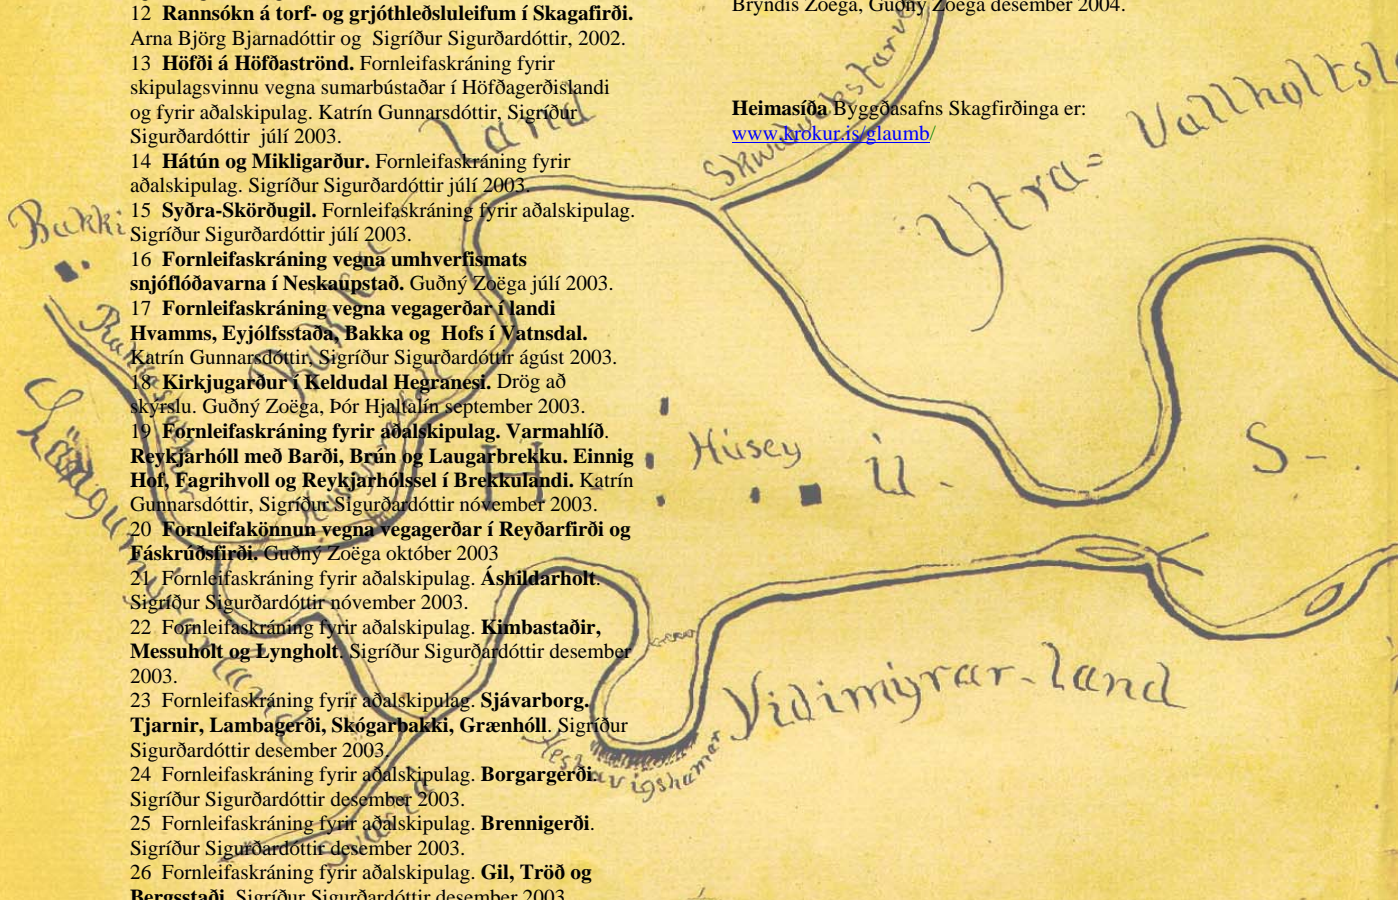 12 Rannsókn á torf- og grjóthleðsluleifum í Skagafirði.
Arna Björg Bjarnadóttir og Sigríður Sigurðardóttir, 2002.
13 Höfði á Höfðaströnd. Fornleifaskráning fyrir
skipulagsvinnu vegna sumarbústaðar í Höfðagerðislandi
og fyrir aðalskipulag. Katrín Gunnarsdóttir, Sigríður
Sigurðardóttir júlí 2003.
14 Hátún og Mikligarður. Fornleifaskráning fyrir
aðalskipulag. Sigríður Sigurðardóttir júlí 2003.
15 Syðra-Skörðugil. Fornleifaskráning fyrir aðalskipulag.
Sigríður Sigurðardóttir júlí 2003.
16 Fornleifaskráning vegna umhverfismats
snjóflóðavarna í Neskaupstað. Guðný Zoëga júlí 2003.
17 Fornleifaskráning vegna vegagerðar í landi
Hvamms, Eyjólfsstaða, Bakka og Hofs í Vatnsdal.
Katrín Gunnarsdóttir, Sigríður Sigurðardóttir ágúst 2003.
18 Kirkjugarður í Keldudal Hegranesi. Drög að
skýrslu. Guðný Zoëga, Þór Hjaltalín september 2003.
19 Fornleifaskráning fyrir aðalskipulag. Varmahlíð.
Reykjarhóll með Barði, Brún og Laugarbrekku. Einnig
Hof, Fagrihvoll og Reykjarhólssel í Brekkulandi. Katrín
Gunnarsdóttir, Sigríður Sigurðardóttir nóvember 2003.
20 Fornleifakönnun vegna vegagerðar í Reyðarfirði og
Fáskrúðsfirði. Guðný Zoëga október 2003
21 Fornleifaskráning fyrir aðalskipulag. Áshildarholt.
Sigríður Sigurðardóttir nóvember 2003.
22 Fornleifaskráning fyrir aðalskipulag. Kimbastaðir,
Messuholt og Lyngholt. Sigríður Sigurðardóttir desember
2003.
23 Fornleifaskráning fyrir aðalskipulag. Sjávarborg.
Tjarnir, Lambagerði, Skógarbakki, Grænhóll. Sigríður
Sigurðardóttir desember 2003.
24 Fornleifaskráning fyrir aðalskipulag. Borgargerði.
Sigríður Sigurðardóttir desember 2003.
25 Fornleifaskráning fyrir aðalskipulag. Brennigerði.
Sigríður Sigurðardóttir desember 2003.
26 Fornleifaskráning fyrir aðalskipulag. Gil, Tröð og
Bergsstaði. Sigríður Sigurðardóttir desember 2003.
Bryndís Zoëga, Guðný Zoëga desember 2004.
Heimasíða Byggðasafns Skagfirðinga er:
www.krokur.is/glaumb/
Bakki
Bakka
land
Ytra=
Húsey
H
ú.
S-
Vidimýrar-land